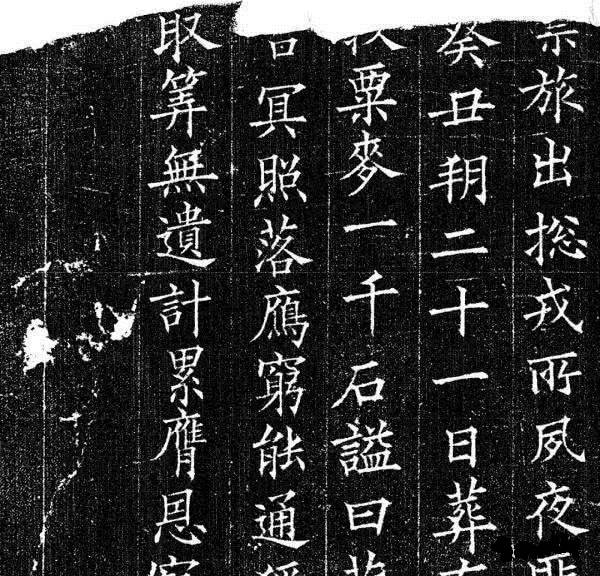 旅出捴戎所夙夜匪
癸丑朔二十一日葬
粟麥一千石謚曰
冥照落鴈窮能通
取筭無遺計累膺恩